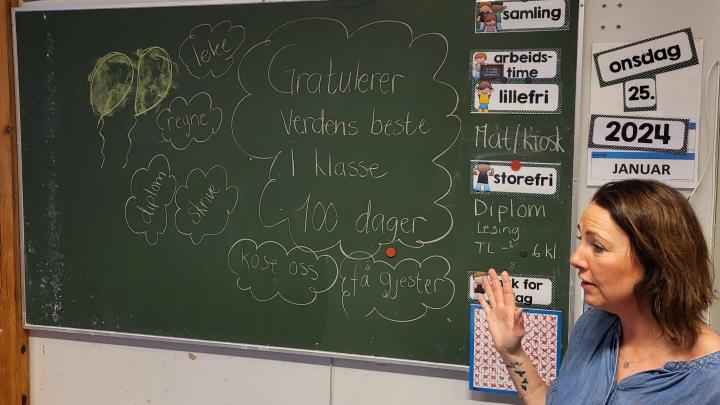 leke
regne
diplom
skrive
Gratulerer
Verdens beste
1 klasse
100 dager
kose oss
få gjester
samling
arbeids-
time
lillefri
Mat/kiosk
storefri
Diplom
Lesing
TL - 6 kl
k for
ag
onsdag
25.
2024
JANUAR